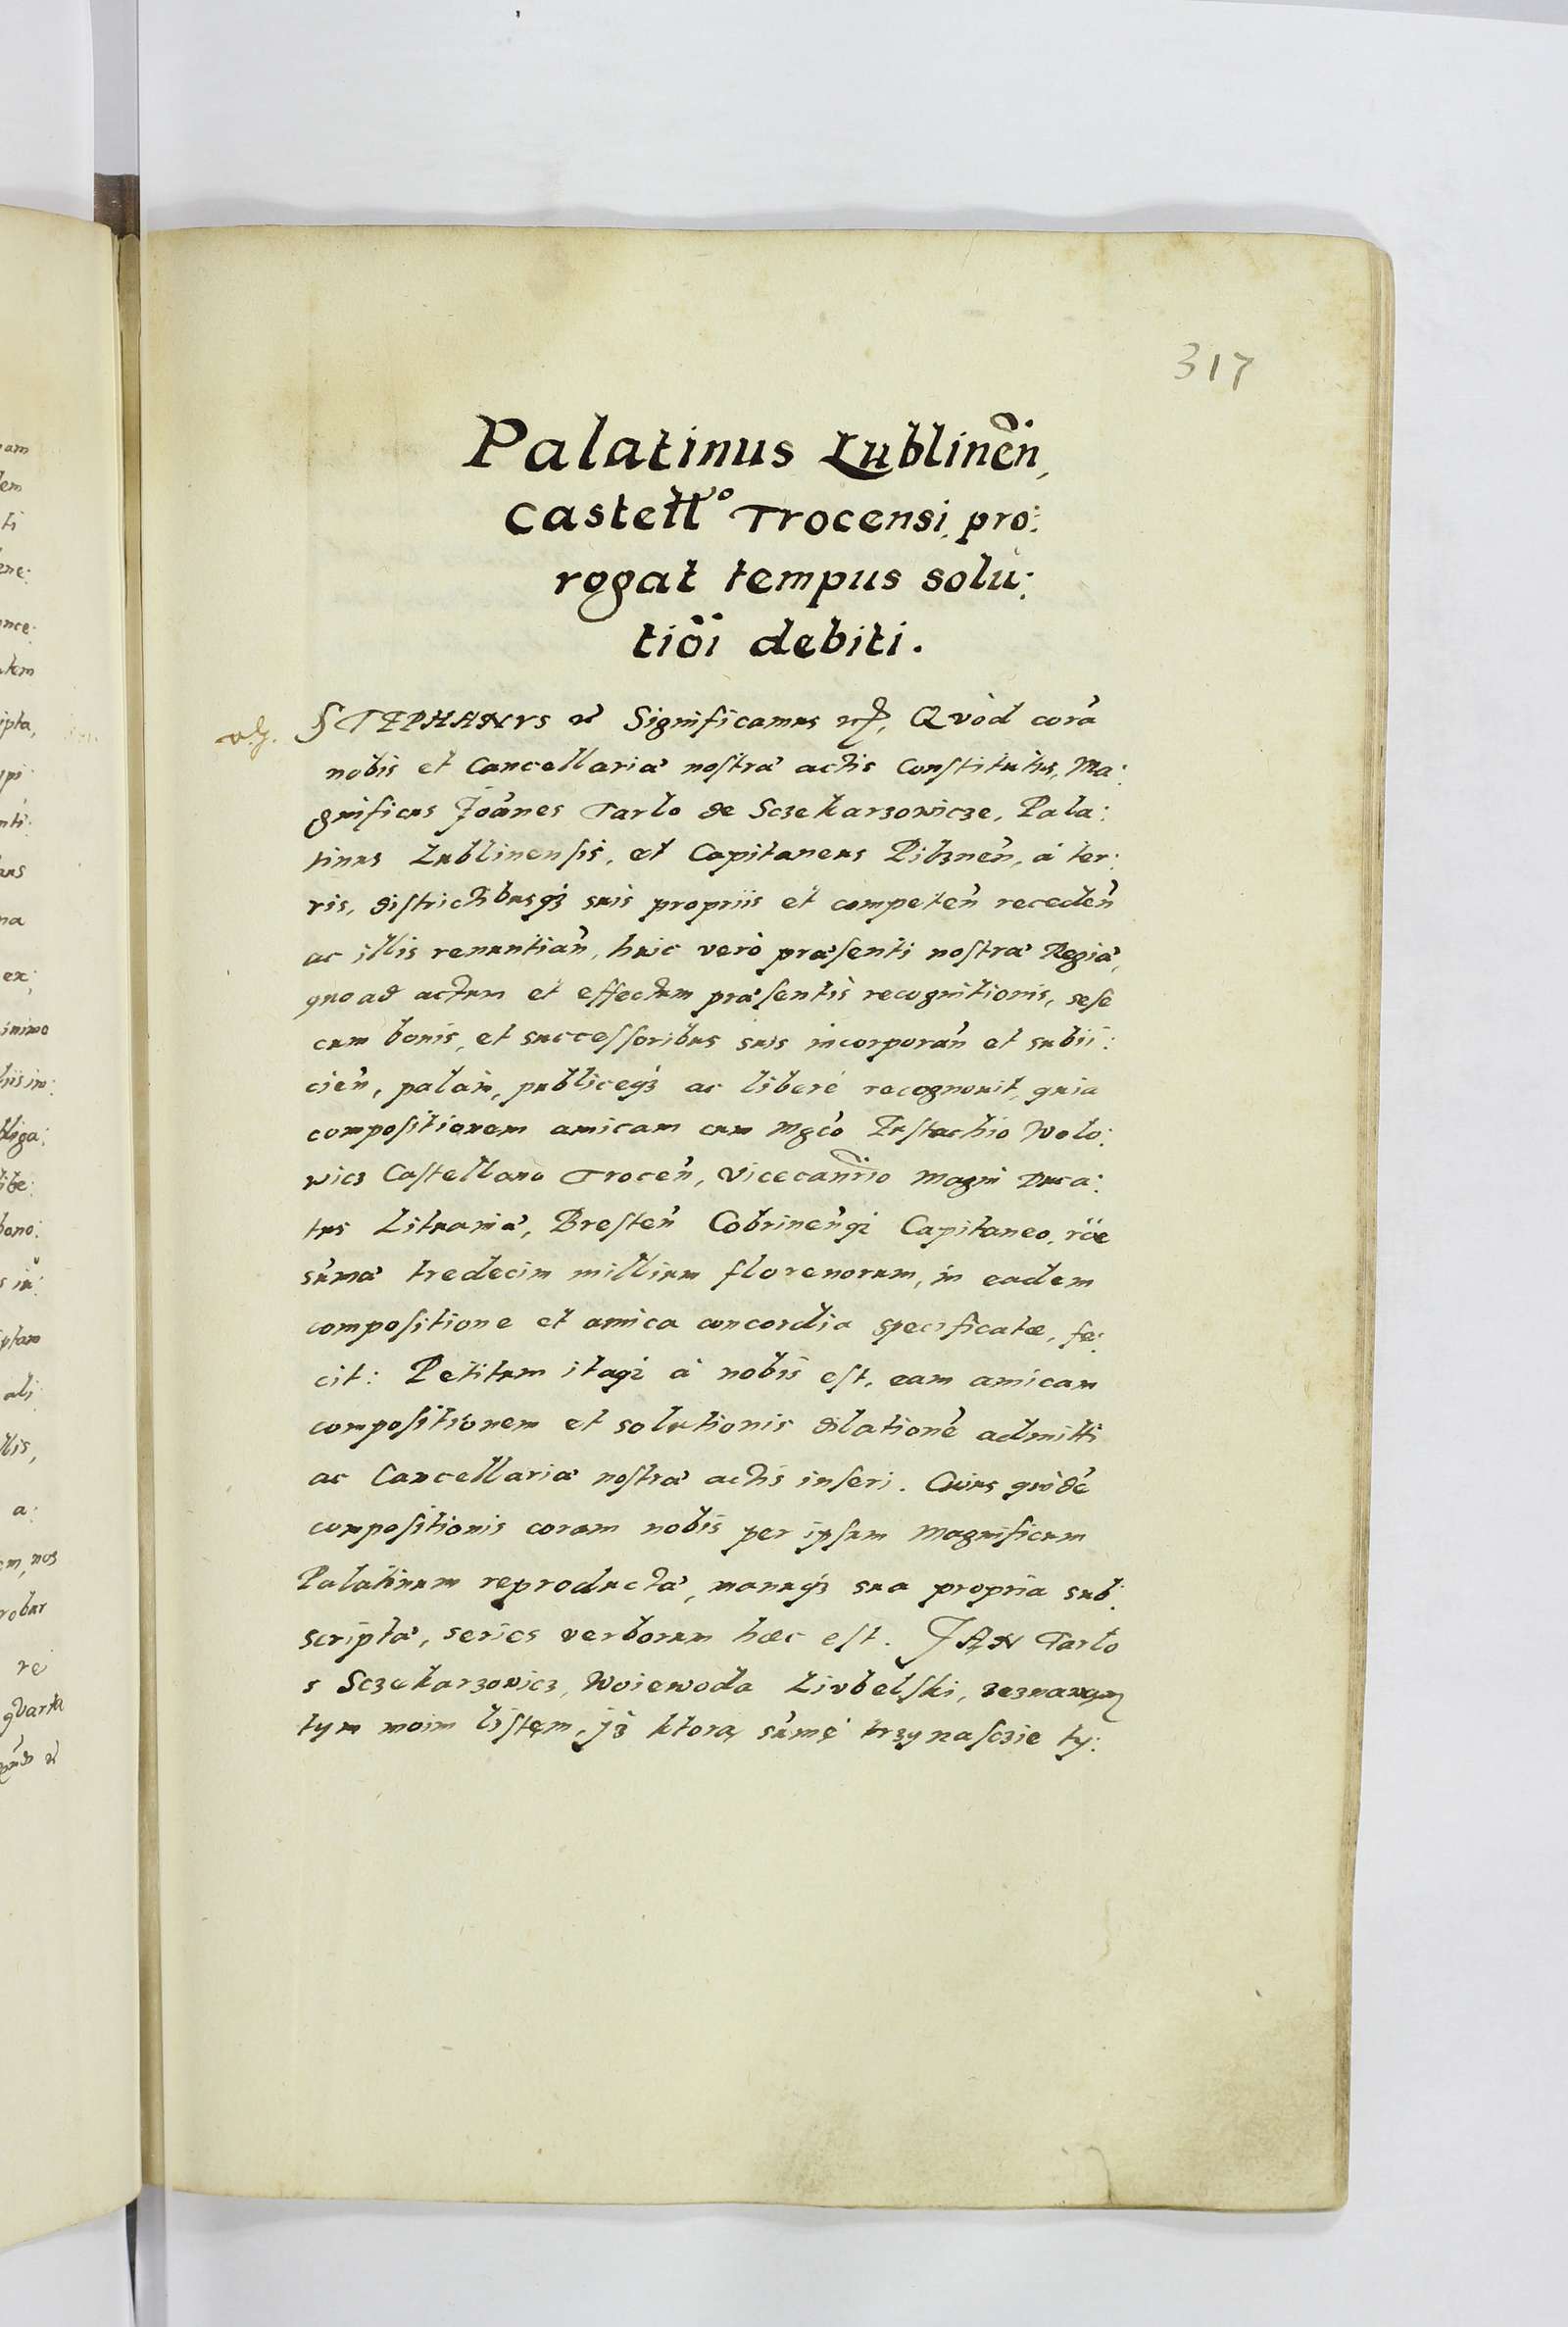 317
Palatinus Lublineñ,
Castell° Trocensi, pro:
rogat tempus solu:
tiõi debiti.
STEPHANVS etc Significamus etc, Qvòd corã
nobis et Cancellariæ nostræ actis Constitutus, Ma:
gnificus Joãnes Tarlo de Sczekarzowicze, Pala:
tinus Lublinensis, et Capitaneus Pilzneñ, à ter:
ris, districtibusq3 suis propriis et competeñ recedeñ
ac illis renuntiañ, huic verò præsenti nostræ Regiæ,
quo ad actum et effectum præsentis recognitionis, sese
cum bonis, et successoribus suis incorporañ et subii:
cieñ, palàm, publiceq3 ac liberè recognouit, quia
compositionem amicam cum Mgco Eustachio Wolo:
wicz Castellano Troceñ, Vicecancrio Magni Duca:
tus Lituaniæ, Bresteñ Cobrineñq3 Capitaneo, rõe
sum̃æ tredecim millium florenorum, in eadem
compositione et amica concordia specificatæ, fe:
cit: Petitum itaq3 à nobis est, eam amicam
compositionem et solutionis dilationẽ admitti
ac Cancellariæ nostræ actis inseri. Cuius quidẽ
compositionis coram nobis per ipsum Magnificum
Palatinum reproductæ, manuq3 sua propria sub:
scriptæ, series verborum hæc est. JAN Tarlo
s Sczekarzowicz, Woiewoda Liubelski, zeznawam
tym moim listem, jż ktorą sum̃ę trzynasczie ty: